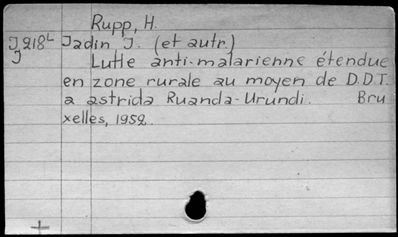 Rupp, H.
J218L Jadin J. (et autr.)
J
Lutte anti-malarienne étendue
en zone rurale au moyen de D.D.T.
a astrida Ruanda-Urundi. Bru
xelles, 1952.
+